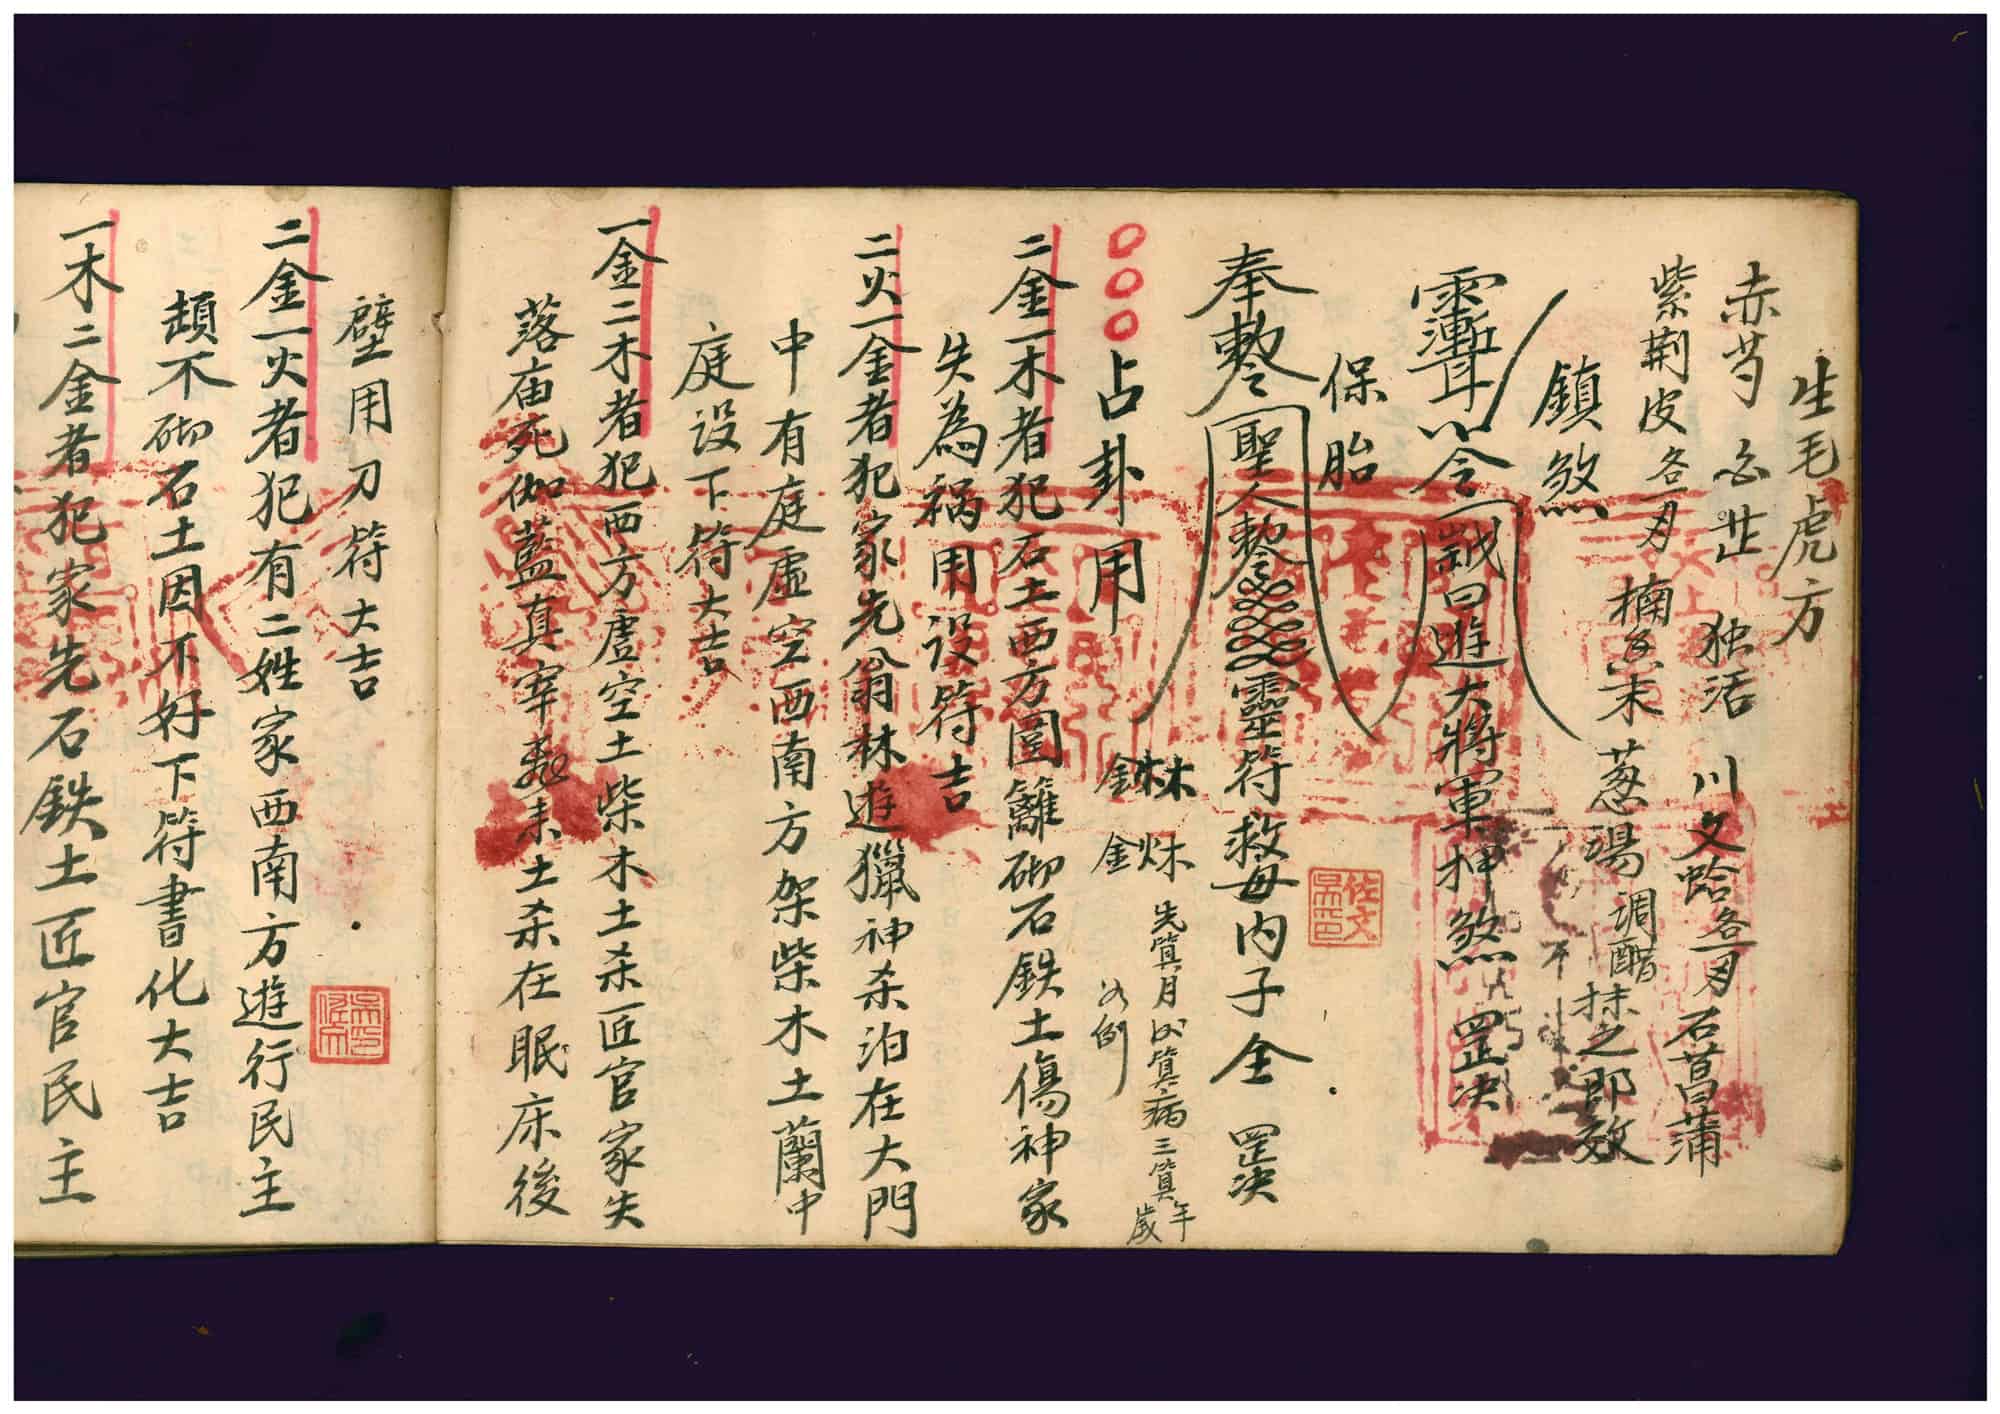 生毛虎方
赤芍 白芷 独活 川文蛤各一刃 石菖蒲
紫荆皮各一刃 末葱湯調醋抹之即效
鎮煞
令 日遊大將軍押煞 罡决
保胎
奉勅聖人勅令靈符救母内子全 罡决
占卦用
先算月 算病三算年歲
二金一木者犯石土西方圍籬砌石鉄土傷神家
失為禍用设符吉
二火一金者犯家先翁林遊獵神杀泊在大門
中有庭虚空西南方架柴木土蘭中
庭设下符大吉
一金二木者犯西方虚空土柴木土杀匠官家失
落庙死伽藍真宰 土杀在眠床後
壁用刀符大吉
二金一火者犯有二姓家西南方遊行民主
頭不砌石土因不好下符書化大吉
一木二金者犯家先石鉄土匠官民主